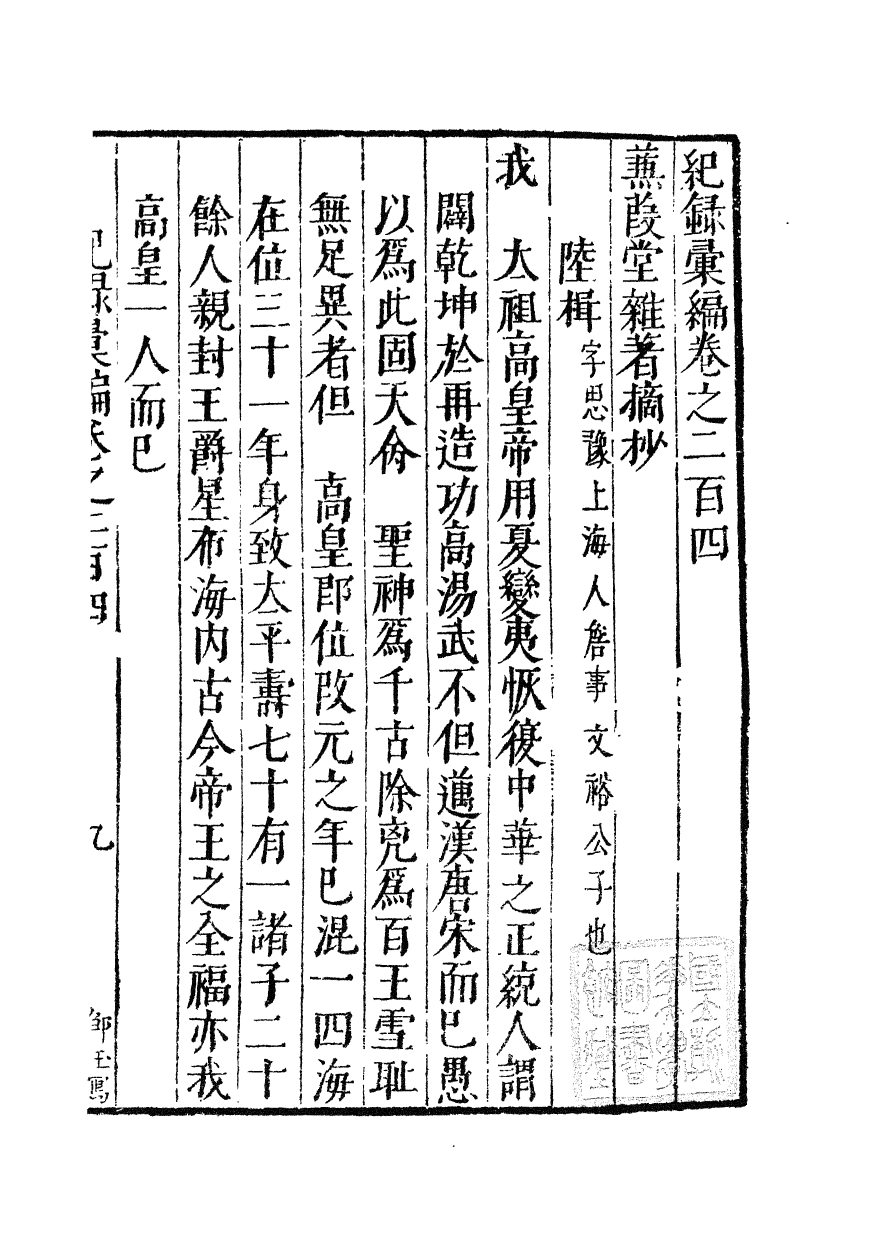 紀録彙編卷之二百四
蒹葭堂雜著摘抄
陸楫字思豫上海人詹事文裕公子也
我　太祖高皇帝用夏變夷恢復中華之正統人謂
闢乾坤於再造功高湯武不但邁漢唐宋而已愚
以爲此固天啓　聖神爲千古除兇爲百王雪耻
無足異者但　高皇即位改元之年已混一四海
在位三十一年身致太平壽七十有一諸子二十
餘人親封王爵星布海内古今帝王之全福亦我
高皇一人而已
紀録彙編卷之二百四　九